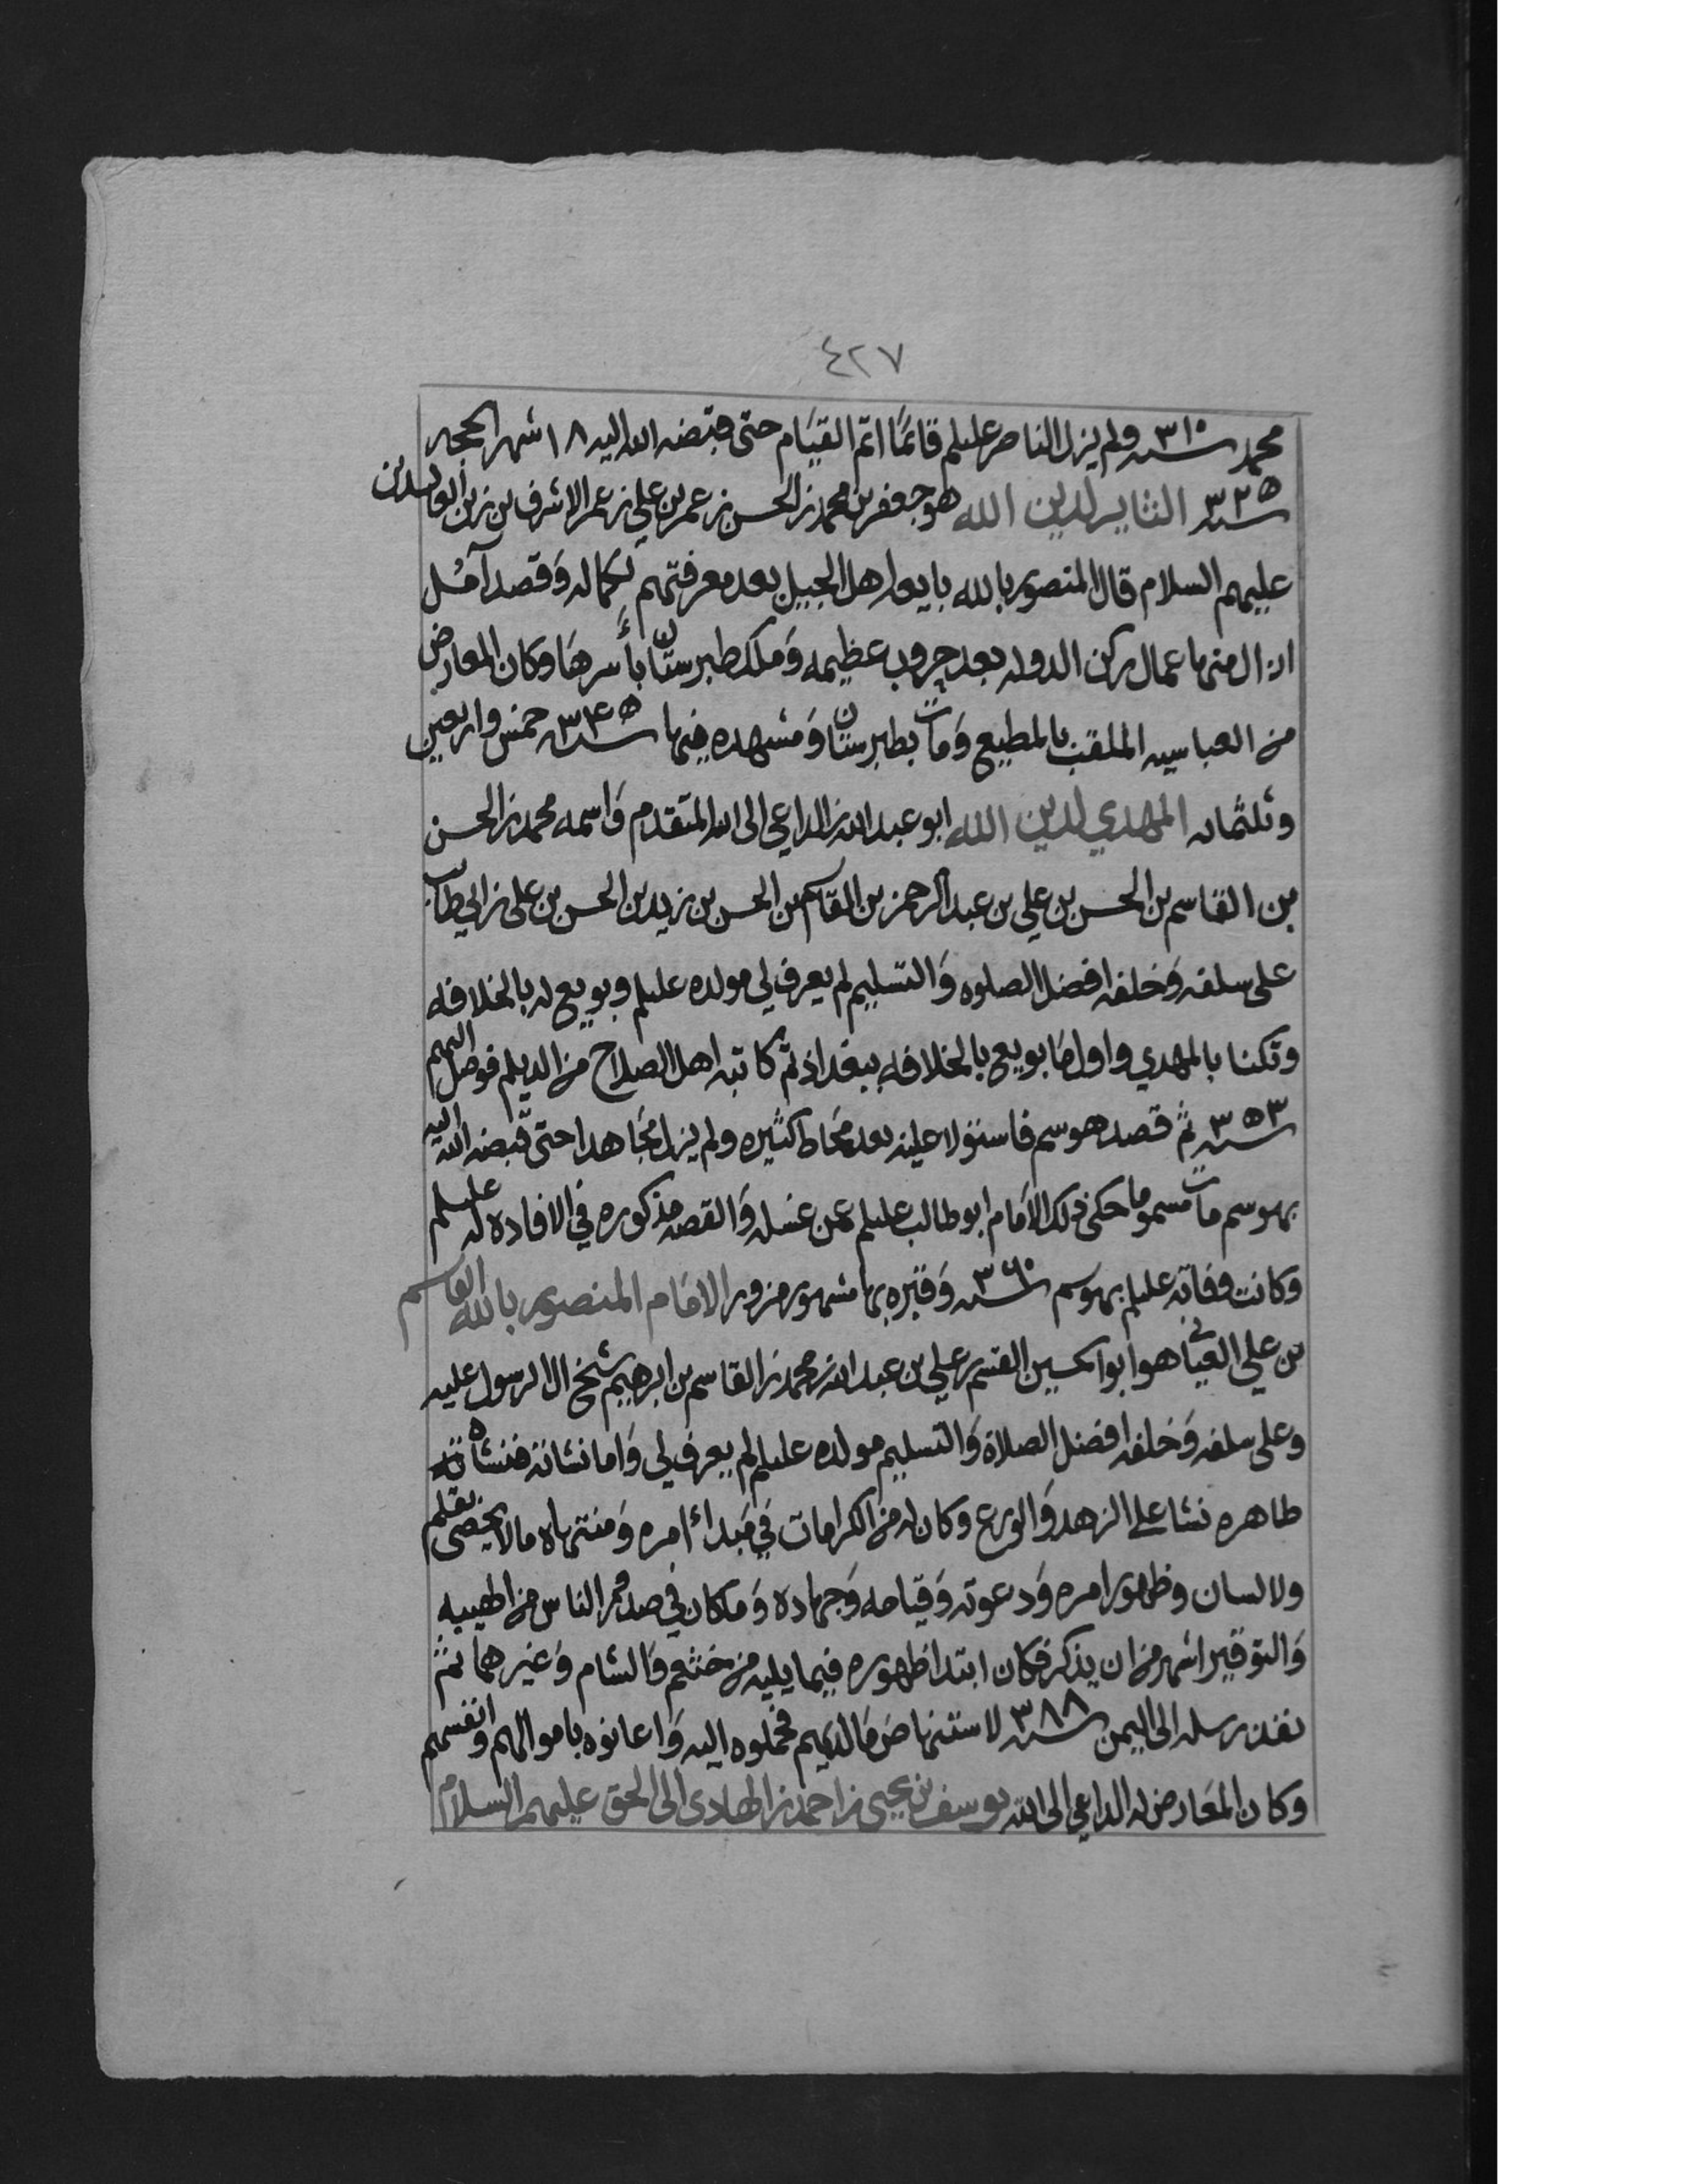 ٤٢٧
محمد سنه ٣١٠ ولم يزل الناصر عليلم قائمًا اتم القيام حتى قبضه الله اليه ١٨ شهر الحجه
سنه ٣٢٥ الثاير لدين الله هو جعفر بن محمد بن الحسن بن عمر بن علي بن عمر الاشرف بن زين العابدين
عليهم السلام قال المنصور بالله بايعه اهل الجيل بعد معرفتهم بكماله وَقصد آمُل
ازال منها عمال ركن الدوله بعد حروب عظيمه وَملك طبرستان بأسرها وكان المعارض
من العباسيه الملقب بالمطيع وَمات بطبرستان وَمشهده فيها سنه ٣٤٥ خمس واربعين
وثلثمائه المهدي لدين الله ابو عبد الله بن الداعي الى الله المتقدم وَاسمه محمد بن الحسن
بن القاسم بن الحسن بن علي بن عبد الرحمن بن القاسم بن الحسن بن زيد بن الحسن بن علي بن ابي طالب
على سلفه وَخلفه افضل الصلوه وَالتسليم لم يعرف لي مولده عليلم وبويع له بالخلافه
وتكنا بالمهدي واول ما بويع بالخلافه ببغداد ثم كاتبه اهل الصلاح من الديلم فوصل اليهم
سنه ٣٥٣ ثم قصد هوسم فاستولا عليه بعد محاط كثيره ولم يزل مجاهدا حتى قبضه الله اليه
بهوسم مات مسموما حكى ذلك الامام ابو طالب عليلم عمن غسله وَالقصه مذكوره في الافاده له عليلم
وكانت وفاته عليلم بهوسم سنه ٣٦٠ وَقبره بها مشهور مزور الامام المنصور بالله القاسم
بن علي العياني هو ابو الحسين القسم بن علي بن عبد الله بن محمد بن القاسم بن ابرهيم شيخ ال الرسول عليه
وعلى سلفه وَخلفه افضل الصلاة وَالتسليم مولده عليلم لم يعرف لي وَاما نشاته فنشأة
طاهره نشا على الزهد وَالورع وكان له من الكرامات في مبدأ امره وَمنتهاه مالا يحصى بقلم
ولا لسان وظهور امره وَدعوته وَقيامه وَجهاده وَما كان في صدور الناس من الهيبه
وَالتوقير اشهر من ان يذكر فكان ابتدا ظهوره فيما يليه من خثعم وَالشام وَغيرهما ثم
نفذ رسله الى اليمن سنه ٣٨٨ لاستنهاض مَا لديهم فحملوه اليه وَاعانوه باموالهم وانفسهم
وكان المعارض له الداعي الى الله يوسف بن يحيى بن احمد بن الهادى الى الحق عليهم السلام